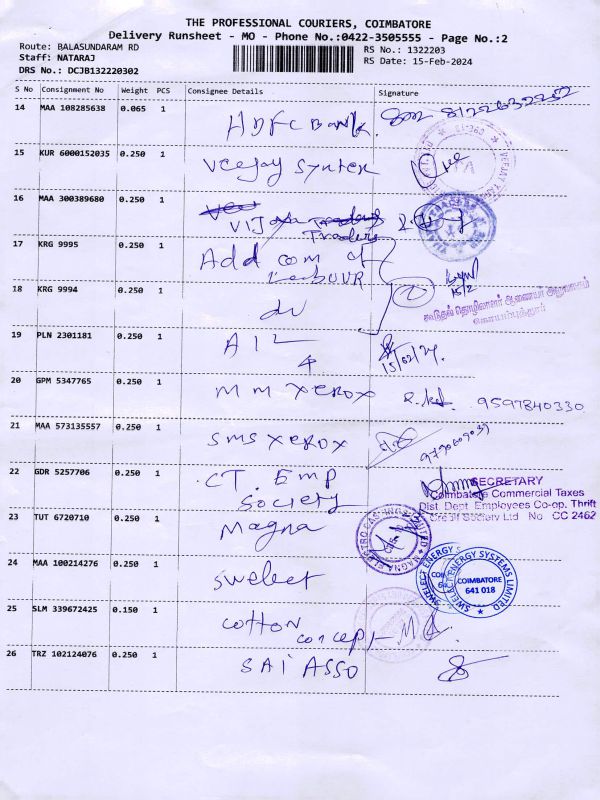 THE PROFESSIONAL COURIERS, COIMBATORE
Delivery Runsheet - MO - Phone No.:0422-3505555 - Page No.:2
Route: BALASUNDARAM RD
RS No.: 1322203
Staff: NATARAJ
RS Date: 15-Feb-2024
DRS No.: DCJB132220302
S No Consignment No Weight PCS Consignee Details Signature
14 MAA 108285638 0.065 1 HDFC Bank
15 KUR 6000152035 0.250 1 Veejay Syntex
16 MAA 300389680 0.250 1 VIJaya Traders
Traders
17 KRG 9995 0.250 1 Add com of
Labour
15/2
18 KRG 9994 0.250 1 do
கூடுதல் தொழிலாளர் ஆணையர் அலுவலகம்
கோயம்புத்தூர்
19 PLN 2301181 0.250 1 AIL 15/02/24
20 GPM 5347765 0.250 1 MM XEROX 9597840330
21 MAA 573135557 0.250 1 SMS XEROX
22 GDR 5257706 0.250 1 CT. Emp
Society
SECRETARY
Coimbatore Commercial Taxes
Dist. Dept. Employees Co-op. Thrift
Credit Society Ltd No CC 2462
23 TUT 6720710 0.250 1 Magna
MAGNA ELECTRO CASTINGS LIMITED
24 MAA 100214276 0.250 1 Swelect
SWELECT ENERGY SYSTEMS LIMITED
COIMBATORE
641 018
25 SLM 339672425 0.150 1 Cotton
concept
26 TRZ 102124076 0.250 1 SAI ASSO